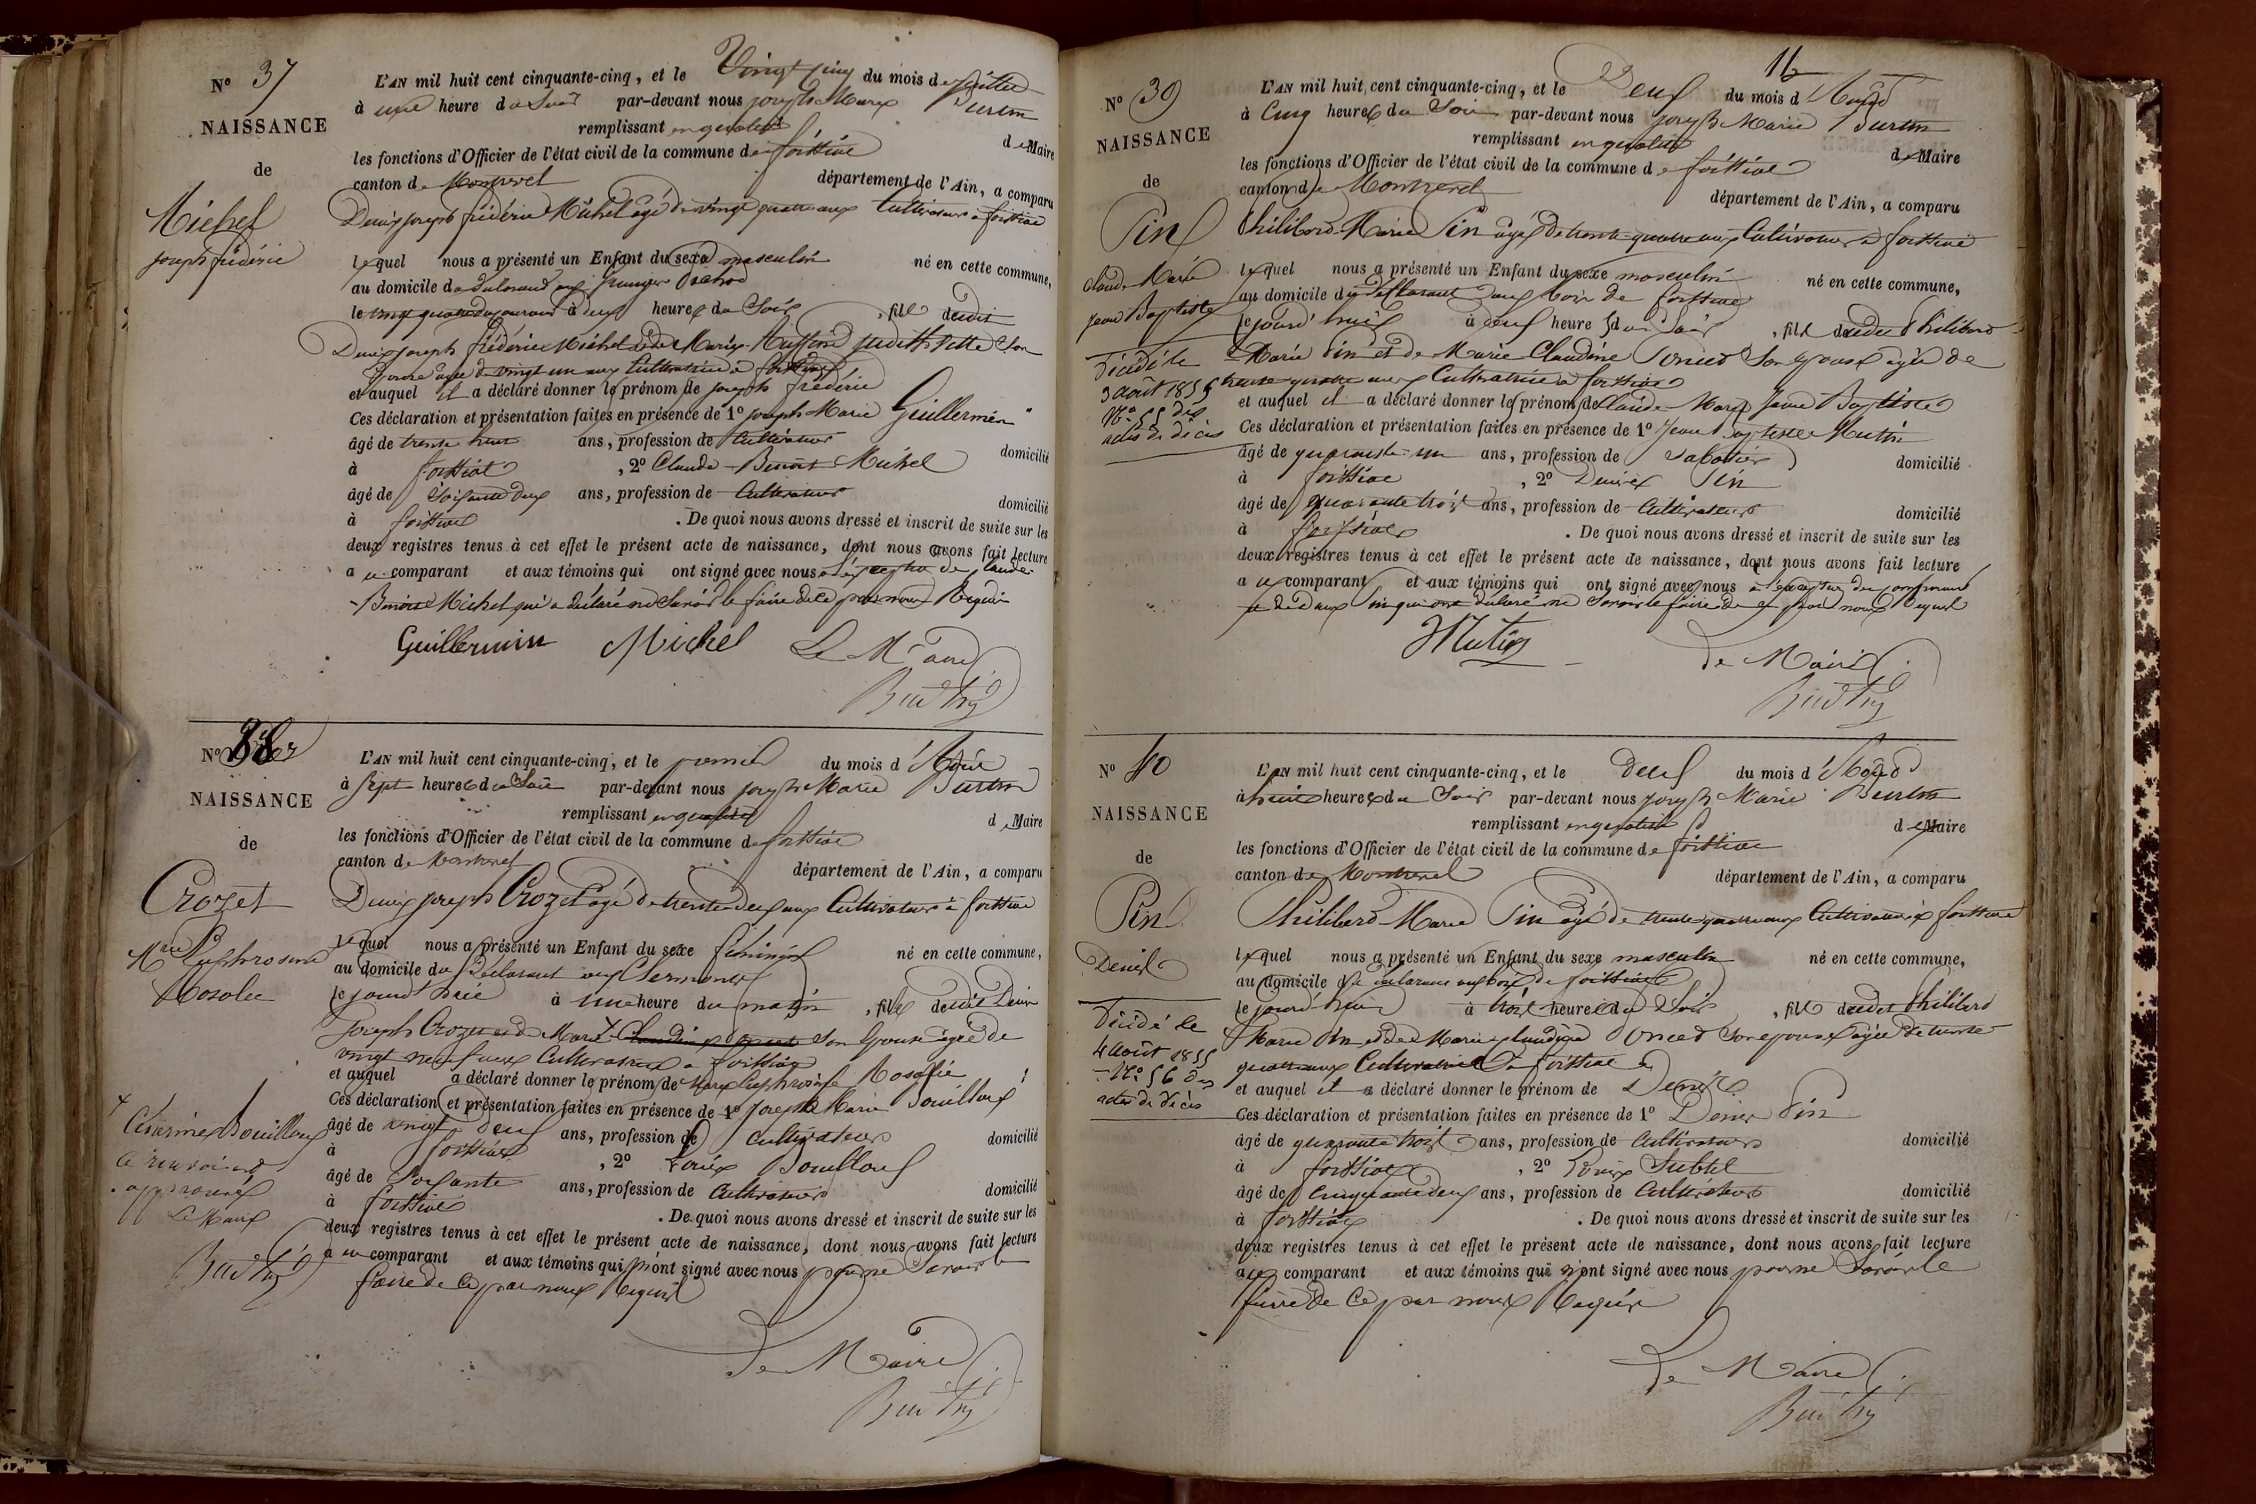 N° 37
NAISSANCE
de
Michel
joseph frédéric
L'AN mil huit cent cinquante-cinq, et le Vingt cinq du mois de juillet
à une heure du Soir par-devant nous joseph Marie Burtin
remplissant en qualité de Maire
les fonctions d'Officier de l'état civil de la commune de foissiat
canton de Montrevel département de l'Ain, a comparu
Denis joseph frédéric Michel agé de vingt quatre ans Cultivateur à foissiat
lequel nous a présenté un Enfant du sexe masculin né en cette commune,
au domicile du déclarant
le vingt quatre du courant à deux heures du Soir, fils dudit
Denis joseph frédéric Michel et de Marie judith Son
épouse agée de vingt un ans Cultivatrice à foissiat
et auquel il a déclaré donner le prénom de joseph frédéric
Ces déclaration et présentation faites en présence de 1° joseph Marie Guillermin
âgé de trente ans, profession de Cultivateur domicilié
à foissiat, 2° Claude Benoit Michel
âgé de Soixante deux ans, profession de Cultivateur domicilié
à foissiat. De quoi nous avons dressé et inscrit de suite sur les
deux registres tenus à cet effet le présent acte de naissance, dont nous avons fait lecture
au comparant et aux témoins qui ont signé avec nous à l'exception de Claude
Benoit Michel qui a déclaré ne Savoir le faire de ce par nous Requis
Guillermin Michel Le Maire
Burtin
N° 38
NAISSANCE
de
Crozet
Mrie Euphrosine
Rosalie
L'AN mil huit cent cinquante-cinq, et le premier du mois d'Août
à Sept heures du Soir par-devant nous joseph Marie Burtin
remplissant en qualité de Maire
les fonctions d'Officier de l'état civil de la commune de foissiat
canton de Montrevel département de l'Ain, a comparu
Denis joseph Crozet agé de trente deux ans Cultivateur à foissiat
lequel nous a présenté un Enfant du sexe féminin né en cette commune,
au domicile du Déclarant aux
le jourd'hui à une heure du matin, fille dudit Denis
joseph Crozet et de Marie Son épouse agée de
vingt neuf ans Cultivatrice à foissiat
et auquel a déclaré donner le prénom de Marie Euphrosine Rosalie
Ces déclaration et présentation faites en présence de 1° joseph Marie Bouilloux
âgé de vingt deux ans, profession de Cultivateur domicilié
à foissiat, 2° Bouilloux
âgé de Soixante ans, profession de Cultivateur domicilié
à foissiat. De quoi nous avons dressé et inscrit de suite sur les
deux registres tenus à cet effet le présent acte de naissance, dont nous avons fait lecture
au comparant et aux témoins qui n'ont signé avec nous pour ne Savoir le
faire de ce par nous Requis
Bouilloux
Ce renvoi est
approuvé
Le Maire
Burtin
Le Maire
Burtin
16
N° 39
NAISSANCE
de
Pin
Claude Marie
Jean Baptiste
Décédé le
3 août 1855
N° 55 des
actes de décès
L'AN mil huit cent cinquante-cinq, et le Deux du mois d'Août
à Cinq heures du Soir par-devant nous joseph Marie Burtin
remplissant en qualité de Maire
les fonctions d'Officier de l'état civil de la commune de foissiat
canton de Montrevel département de l'Ain, a comparu
Philibert Marie Pin agé de trente quatre ans Cultivateur à foissiat
lequel nous a présenté un Enfant du sexe masculin né en cette commune,
au domicile du déclarant aux bois de foissiat
le jourd'hui à deux heures du Soir, fils dudit Philibert
Marie Pin et de Marie Claudine Poncet Son épouse agée de
trente quatre ans Cultivatrice à foissiat
et auquel il a déclaré donner le prénom de Claude Marie Jean Baptiste
Ces déclaration et présentation faites en présence de 1° Jean Baptiste Mutin
âgé de quarante un ans, profession de Sabotier domicilié
à foissiat, 2° Denis Pin
âgé de quarante trois ans, profession de Cultivateur domicilié
à foissiat. De quoi nous avons dressé et inscrit de suite sur les
deux registres tenus à cet effet le présent acte de naissance, dont nous avons fait lecture
au comparant et aux témoins qui ont signé avec nous à l'exception du comparant
et de Denis Pin qui ont déclaré ne Savoir le faire de ce par nous Requis
Mutin Le Maire
Burtin
N° 40
NAISSANCE
de
Pin
Denis
Décédé le
4 août 1855
N° 56 des
actes de décès
L'AN mil huit cent cinquante-cinq, et le Deux du mois d'Août
à huit heures du Soir par-devant nous joseph Marie Burtin
remplissant en qualité de Maire
les fonctions d'Officier de l'état civil de la commune de foissiat
canton de Montrevel département de l'Ain, a comparu
Philibert Marie Pin agé de trente quatre ans Cultivateur à foissiat
lequel nous a présenté un Enfant du sexe masculin né en cette commune,
au domicile du déclarant aux bois de foissiat
le jourd'hui à trois heures du Soir, fils dudit Philibert
Marie Pin et de Marie Claudine Poncet Son épouse agée de trente
quatre ans Cultivatrice à foissiat
et auquel il a déclaré donner le prénom de Denis
Ces déclaration et présentation faites en présence de 1° Denis Pin
âgé de quarante trois ans, profession de Cultivateur domicilié
à foissiat, 2° Denis Subtil
âgé de Cinquante deux ans, profession de Cultivateur domicilié
à foissiat. De quoi nous avons dressé et inscrit de suite sur les
deux registres tenus à cet effet le présent acte de naissance, dont nous avons fait lecture
au comparant et aux témoins qui n'ont signé avec nous pour ne Savoir le
faire de Ce par nous Requis
Le Maire
Burtin